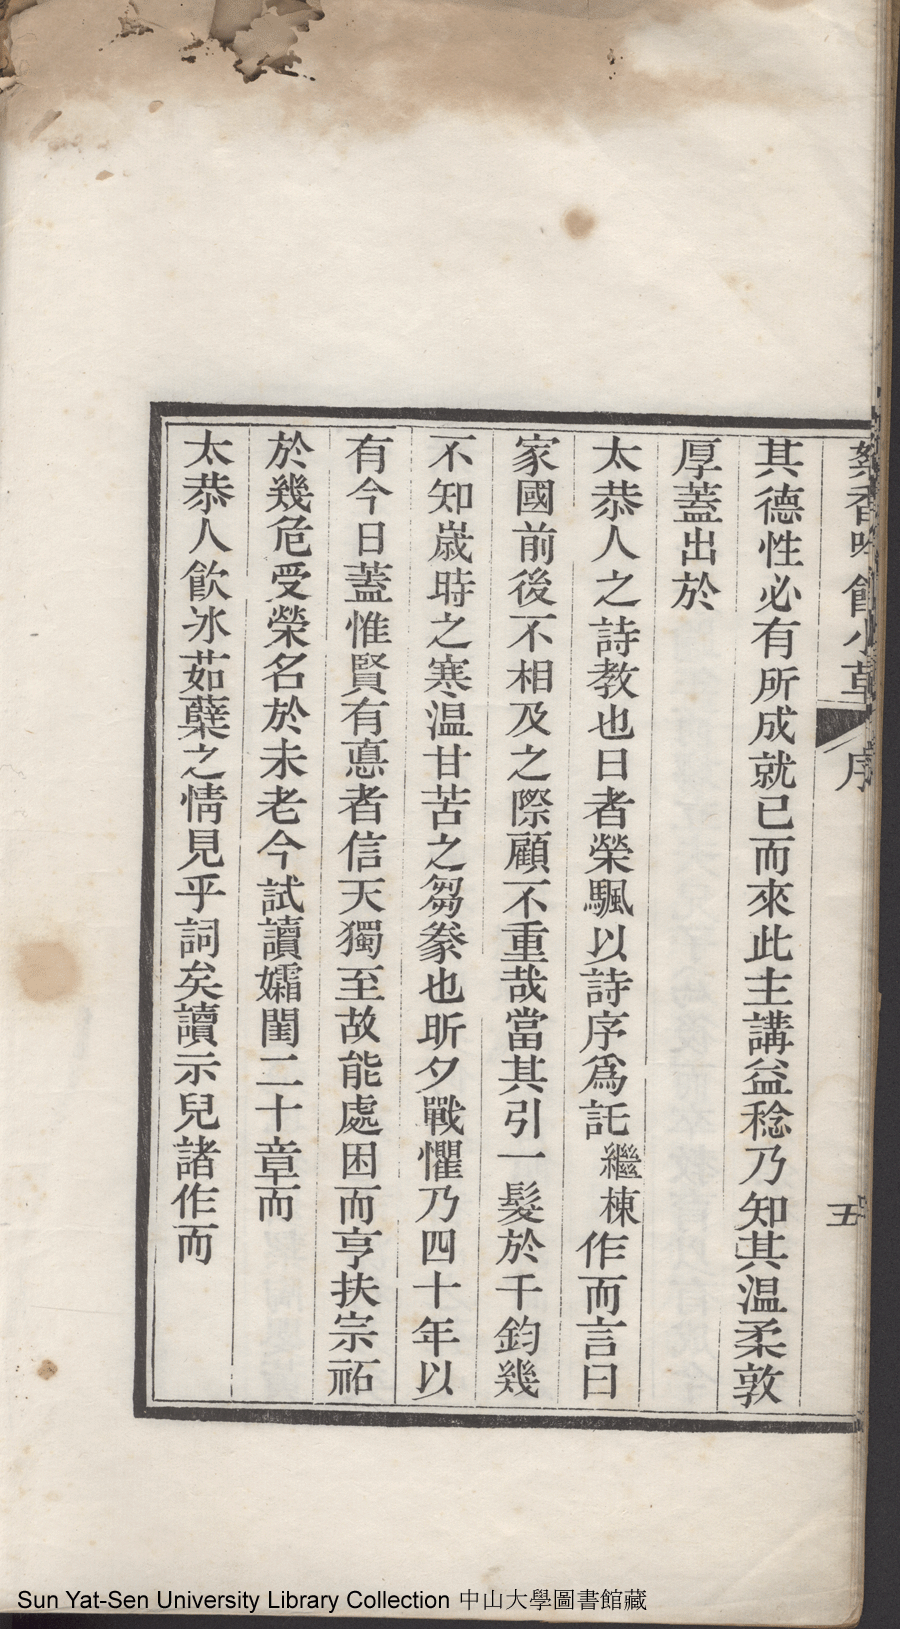 絮香吟館小草
序
五
其德性必有所成就已而來此主講益稔乃知其温柔敦
厚蓋出於
太恭人之詩教也日者榮颿以詩序爲託繼棟作而言曰
家國前後不相及之際顧不重哉當其引一髮於千鈞幾
不知歲時之寒温甘苦之芻豢也昕夕戰懼乃四十年以
有今日蓋惟賢有悳者信天獨至故能處困而亨扶宗祏
於幾危受榮名於未老今試讀孀閨二十章而
太恭人飮冰茹蘖之情見乎詞矣讀示兒諸作而
Sun Yat-Sen University Library Collection 中山大學圖書館藏